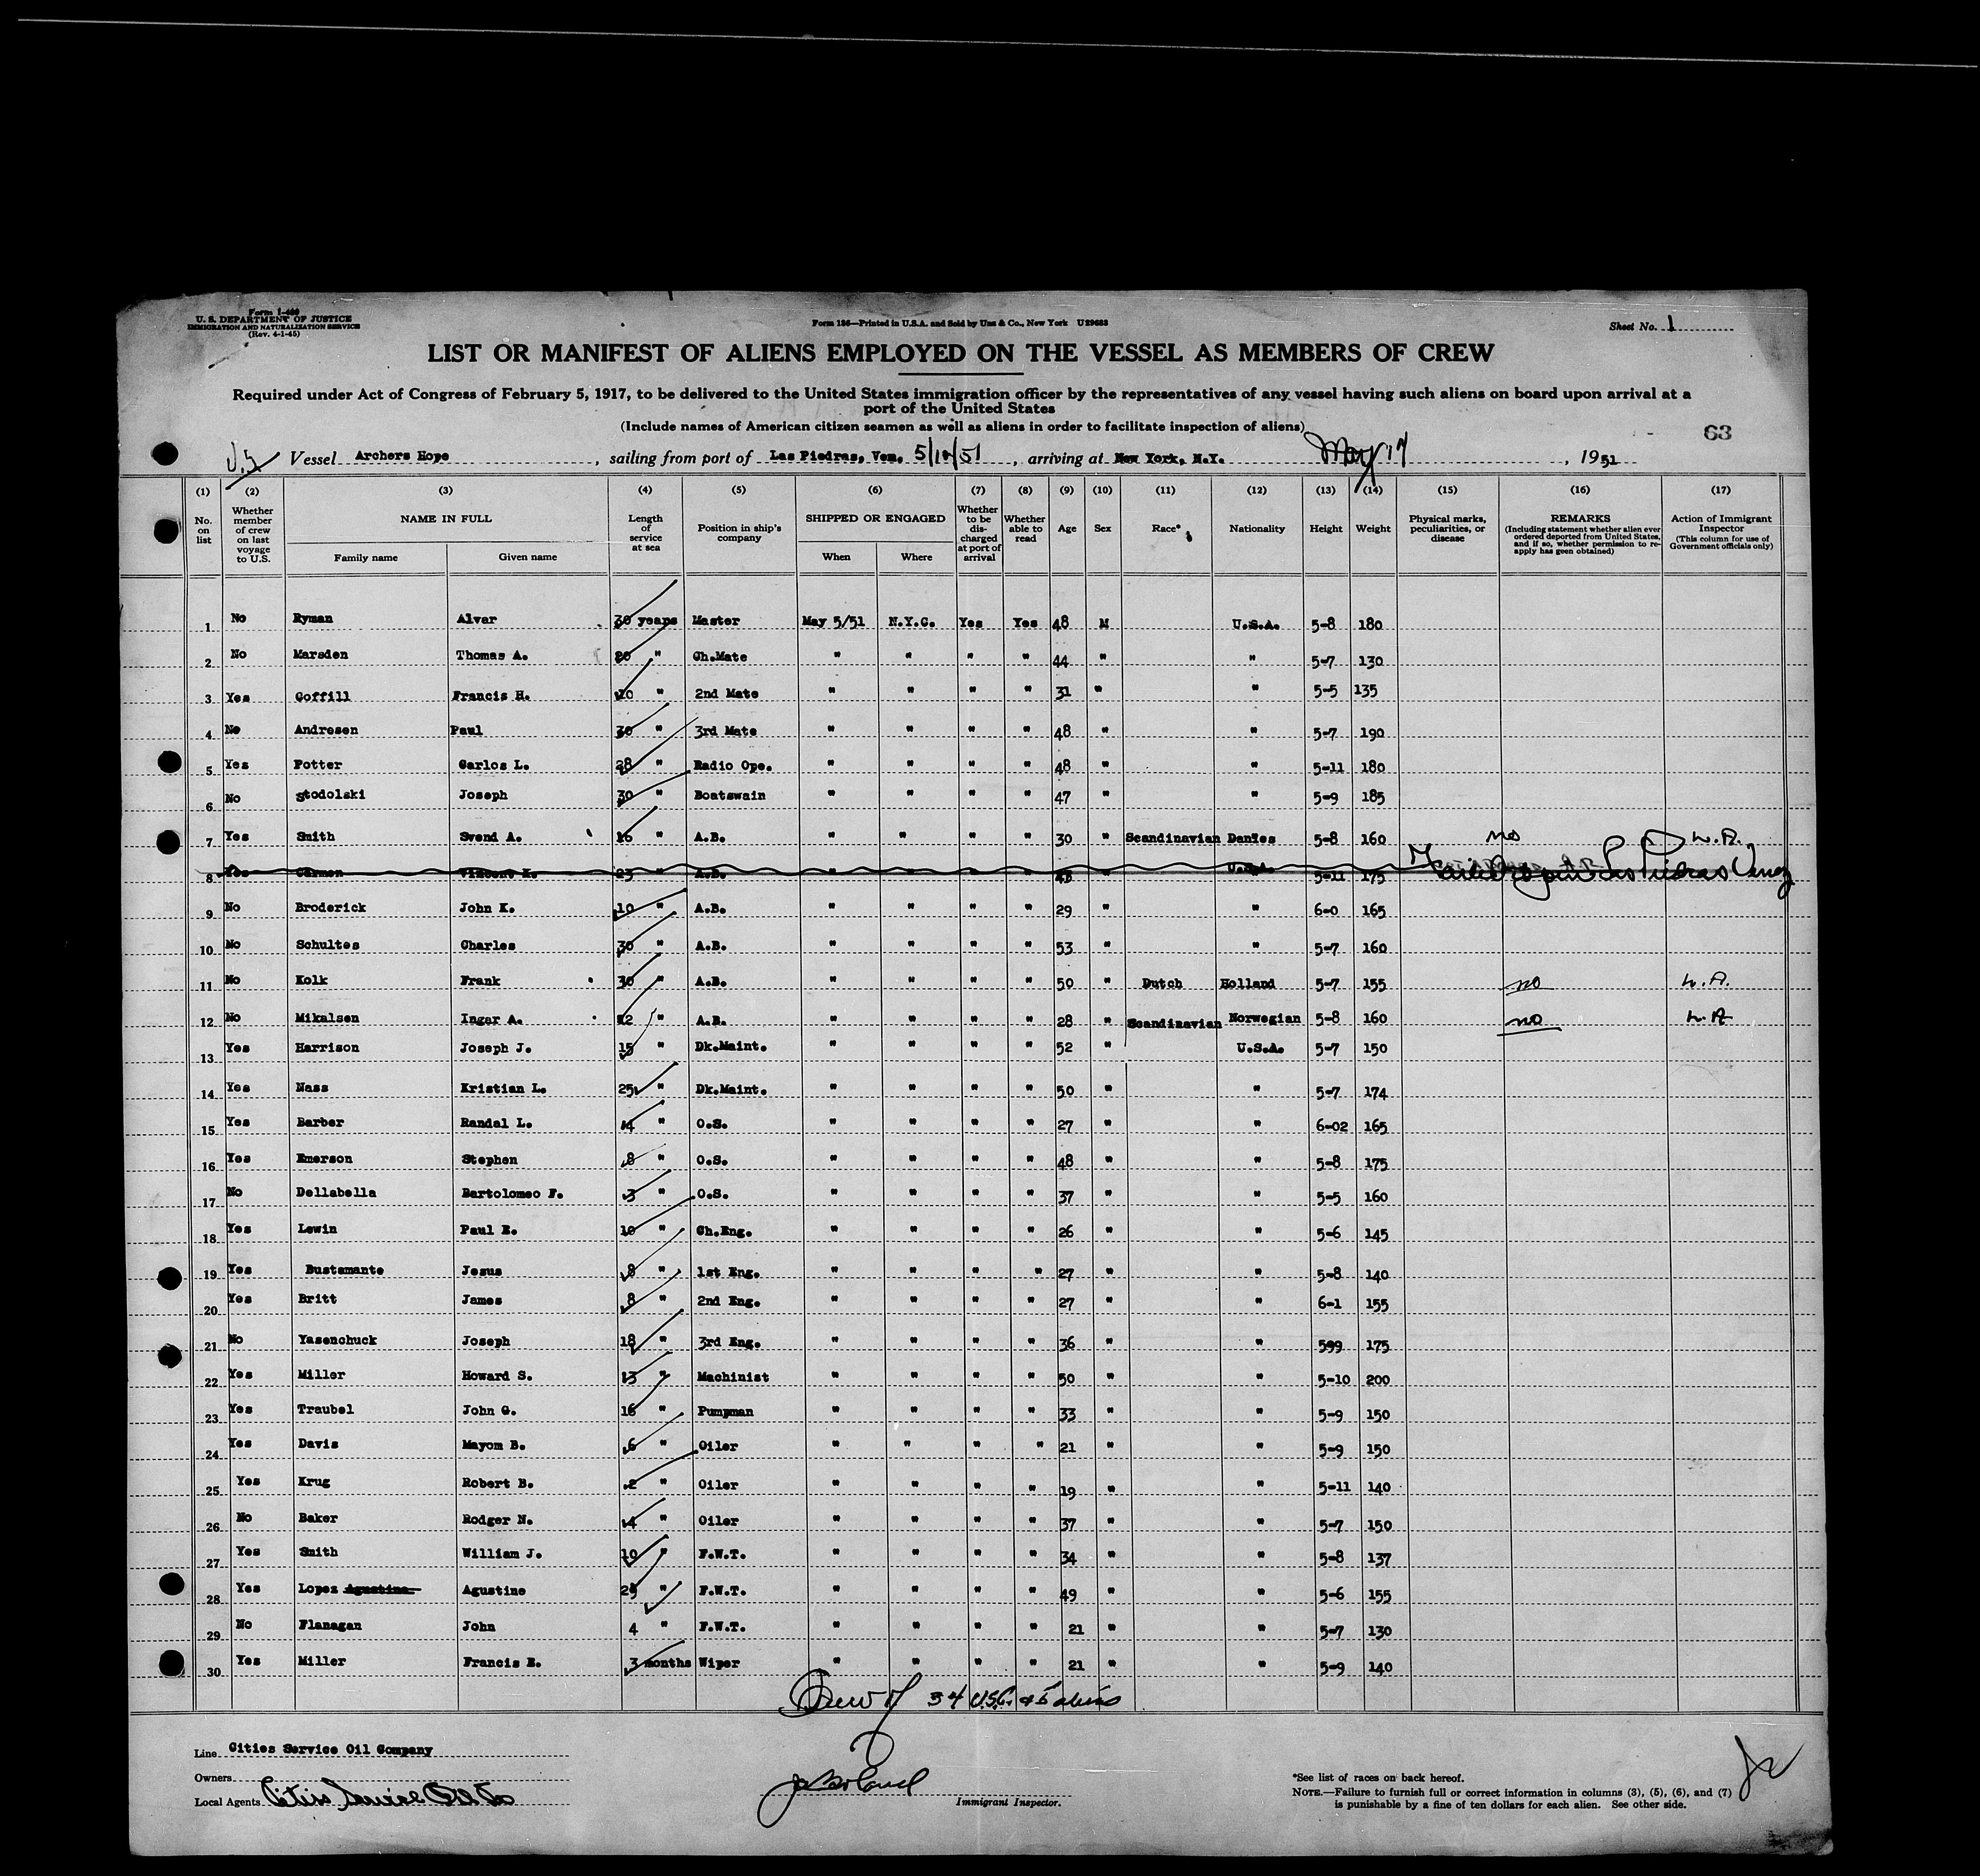 Form I-480
U. S. DEPARTMENT OF JUSTICE
IMMIGRATION AND NATURALIZATION SERVICE
(Rev. 4-1-45)
Form 136—Printed in U.S.A. and Sold by Unz & Co., New York U29683
Sheet No. 1
LIST OR MANIFEST OF ALIENS EMPLOYED ON THE VESSEL AS MEMBERS OF CREW
Required under Act of Congress of February 5, 1917, to be delivered to the United States immigration officer by the representatives of any vessel having such aliens on board upon arrival at a
port of the United States
(Include names of American citizen seamen as well as aliens in order to facilitate inspection of aliens)
63
U.S. Vessel Archers Hope, sailing from port of Las Piedras, Ven. 5/10/51, arriving at New York, N.Y. May 17, 1951
(1) (2) (3) (4) (5) (6) (7) (8) (9) (10) (11) (12) (13) (14) (15) (16) (17)
No. on list
Whether member of crew on last voyage to U.S.
NAME IN FULL
Family name Given name
Length of service at sea
Position in ship's company
SHIPPED OR ENGAGED
When Where
Whether to be discharged at port of arrival
Whether able to read
Age
Sex
Race*
Nationality
Height
Weight
Physical marks, peculiarities, or disease
REMARKS
(Including statement whether alien ever ordered deported from United States, and if so, whether permission to re-apply has been obtained)
Action of Immigrant Inspector
(This column for use of Government officials only)
1 No Ryman Alvar 30 years Master May 5/51 N.Y.C. Yes Yes 48 M U.S.A. 5-8 180
2 No Marsden Thomas A. 20 " Ch.Mate " " " " 44 " " 5-7 130
3 Yes Goffill Francis H. 10 " 2nd Mate " " " " 31 " " 5-5 135
4 No Andresen Paul 30 " 3rd Mate " " " " 48 " " 5-7 190
5 Yes Potter Carlos L. 28 " Radio Ope. " " " " 48 " " 5-11 180
6 No Stodolski Joseph 30 " Boatswain " " " " 47 " " 5-9 185
7 Yes Smith Svend A. 16 " A.B. " " " " 30 " Scandinavian Danies 5-8 160 no L.A.
8 Yes Carmen Vincent K. 23 " A.B. " " " " U.S.A. 5-11 175 Failed to join Las Piedras Venez
9 No Broderick John K. 10 " A.B. " " " " 29 " " 6-0 165
10 No Schultes Charles 30 " A.B. " " " " 53 " " 5-7 160
11 No Kolk Frank 30 " A.B. " " " " 50 " Dutch Holland 5-7 155 no L.A.
12 No Mikalsen Ingar A. 12 " A.B. " " " " 28 " Scandinavian Norwegian 5-8 160 no L.A
13 Yes Harrison Joseph J. 15 " Dk.Maint. " " " " 52 " U.S.A. 5-7 150
14 Yes Nass Kristian L. 25 " Dk.Maint. " " " " 50 " " 5-7 174
15 Yes Barber Randal L. 4 " O.S. " " " " 27 " " 6-02 165
16 Yes Emerson Stephen 8 " O.S. " " " " 48 " " 5-8 175
17 No Dellabella Bartolomeo F. 3 " O.S. " " " " 37 " " 5-5 160
18 Yes Lewin Paul E. 10 " Ch.Eng. " " " " 26 " " 5-6 145
19 Yes Bustamante Jesus 8 " 1st Eng. " " " " 27 " " 5-8 140
20 Yes Britt James 8 " 2nd Eng. " " " " 27 " " 6-1 155
21 No Yasenchuck Joseph 18 " 3rd Eng. " " " " 36 " " 599 175
22 Yes Miller Howard S. 13 " Machinist " " " " 50 " " 5-10 200
23 Yes Traubel John G. 16 " Pumpman " " " " 33 " " 5-9 150
24 Yes Davis Mayom B. 6 " Oiler " " " " 21 " " 5-9 150
25 Yes Krug Robert B. 2 " Oiler " " " " 19 " " 5-11 140
26 No Baker Rodger N. 4 " Oiler " " " " 37 " " 5-7 150
27 Yes Smith William J. 10 " F.W.T. " " " " 34 " " 5-8 137
28 Yes Lopez Agustine Agustine 25 " F.W.T. " " " " 49 " " 5-6 155
29 No Flanagan John 4 " F.W.T. " " " " 21 " " 5-7 130
30 Yes Miller Francis E. 3 months Wiper " " " " 21 " " 5-9 140
Crew of 34 U.S.C. & 5 aliens
Line Cities Service Oil Company
Owners
Local Agents Cities Service Oil Co
Immigrant Inspector.
*See list of races on back hereof.
NOTE.—Failure to furnish full or correct information in columns (3), (5), (6), and (7)
is punishable by a fine of ten dollars for each alien. See other side.